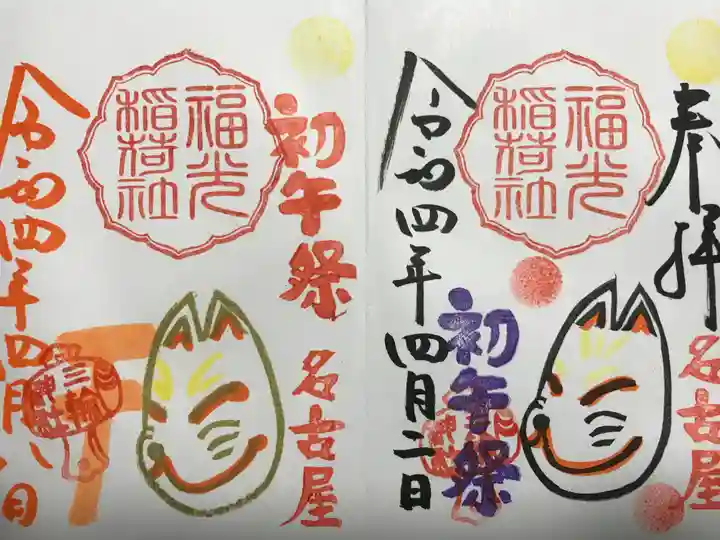 奉拝
福光
稲荷社
名古屋
初午祭
令和四年四月二日
三輪
神社
初午祭
福光
稲荷社
名古屋
三輪
神社
令和四年四月八日